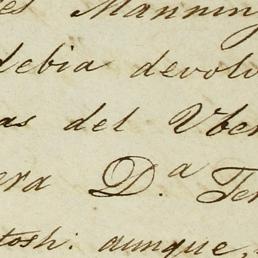 es Manning
debia devol
as del Vber
era D.ª Ter
tosh: aunque,